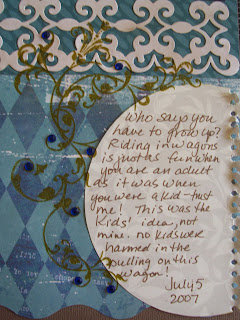 Who says you
have to grow up?
Riding in wagons
is just as fun when
you are an adult
as it was when
you were a kid - trust
me! This was the
kids' idea, not
mine. no kids were
harmed in the
pulling on this
wagon!
July 5
2007